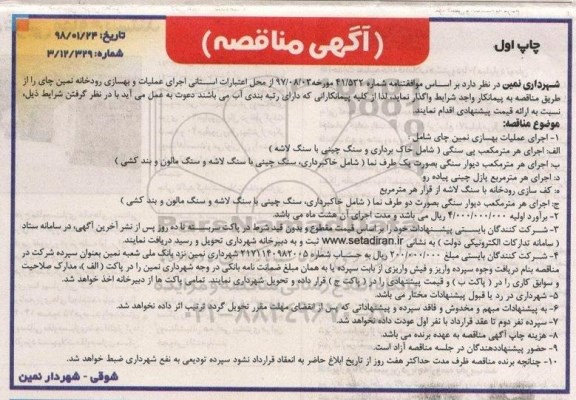 تاریخ: ۹۸/۰۱/۲۴
شماره: ۳/۱۲/۳۲۹
(آگهی مناقصه)
چاپ اول
شهرداری نمین در نظر دارد بر اساس موافقتنامه شماره ۴۱/۵۳۲ مورخه ۹۷/۰۸/۰۳ از محل اعتبارات استانی اجرای عملیات و بهسازی رودخانه نمین چای را از
طریق مناقصه به پیمانکار واجد شرایط واگذار نماید، لذا از کلیه پیمانکارانی که دارای رتبه بندی آب می باشند دعوت به عمل می آید با در نظر گرفتن شرایط ذیل،
نسبت به ارائه قیمت پیشنهادی اقدام نمایند.
موضوع مناقصه:
۱- اجرای عملیات بهسازی نمین چای شامل:
الف: اجرای هر مترمکعب پی سنگی ( شامل خاک برداری و سنگ چینی با سنگ لاشه )
ب: اجرای هر مترمکعب دیوار سنگی بصورت یک طرف نما ( شامل خاکبرداری، سنگ چینی با سنگ لاشه و سنگ مالون و بند کشی )
د: اجرای هر مترمربع پازل چینی پیاده رو
ه: کف سازی رودخانه با سنگ لاشه از قرار هر مترمربع
ج: اجرای هر مترمکعب دیوار سنگی بصورت دو طرف نما ( شامل خاکبرداری، سنگ چینی با سنگ لاشه و سنگ مالون و بند کشی )
۲- برآورد اولیه ۴/۰۰۰/۰۰۰/۰۰۰ ریال می باشد و مدت اجرای آن هشت ماه می باشد.
۳- شرکت کنندگان بایستی پیشنهادات خود را بر اساس قیمت مقطوع و بدون قید شرط در پاکت در بسته تا ده روز پس از نشر آخرین آگهی، در سامانه ستاد
( سامانه تدارکات الکترونیکی دولت ) به نشانی www.setadiran.ir ثبت و به دبیرخانه شهرداری تحویل و رسید دریافت نمایند.
۴- شرکت کنندگان بایستی مبلغ ۲۰۰/۰۰۰/۰۰۰ ریال به حساب شماره ۴۱۲۷۱۱۴۰۹۸۲۰۰۵ شهرداری نمین نزد بانک ملی شعبه نمین بعنوان سپرده شرکت در
مناقصه بنام دریافت وجوه سپرده واریز و فیش واریزی از بابت سپرده یا به همان مبلغ ضمانت نامه بانکی در وجه شهرداری نمین را در پاکت ( الف )، مدارک صلاحیت
و سوابق کاری را در ( پاکت ب ) و قیمت پیشنهادی را در ( پاکت ج ) قرار داده و تحویل شهرداری نمایند. تمامی پاکت ها از دبیرخانه اخذ خواهد شد.
۵- شهرداری در رد یا قبول پیشنهادات مختار می باشد.
۶- به پیشنهادات مبهم و مخدوش و فاقد سپرده و پیشنهاداتی که پس از انقضای مهلت مقرر تحویل گردد ترتیب اثر داده نخواهد شد.
۷- سپرده نفر دوم تا عقد قرارداد با نفر اول عودت داده نخواهد شد.
۸- هزینه چاپ آگهی مناقصه به عهده برنده می باشد.
۹- حضور پیشنهاددهندگان در جلسه مناقصه آزاد است.
۱۰- چنانچه برنده مناقصه ظرف مدت حداکثر هفت روز از تاریخ ابلاغ حاضر به انعقاد قرارداد نشود سپرده تودیعی به نفع شهرداری ضبط خواهد شد.
شوقی - شهردار نمین